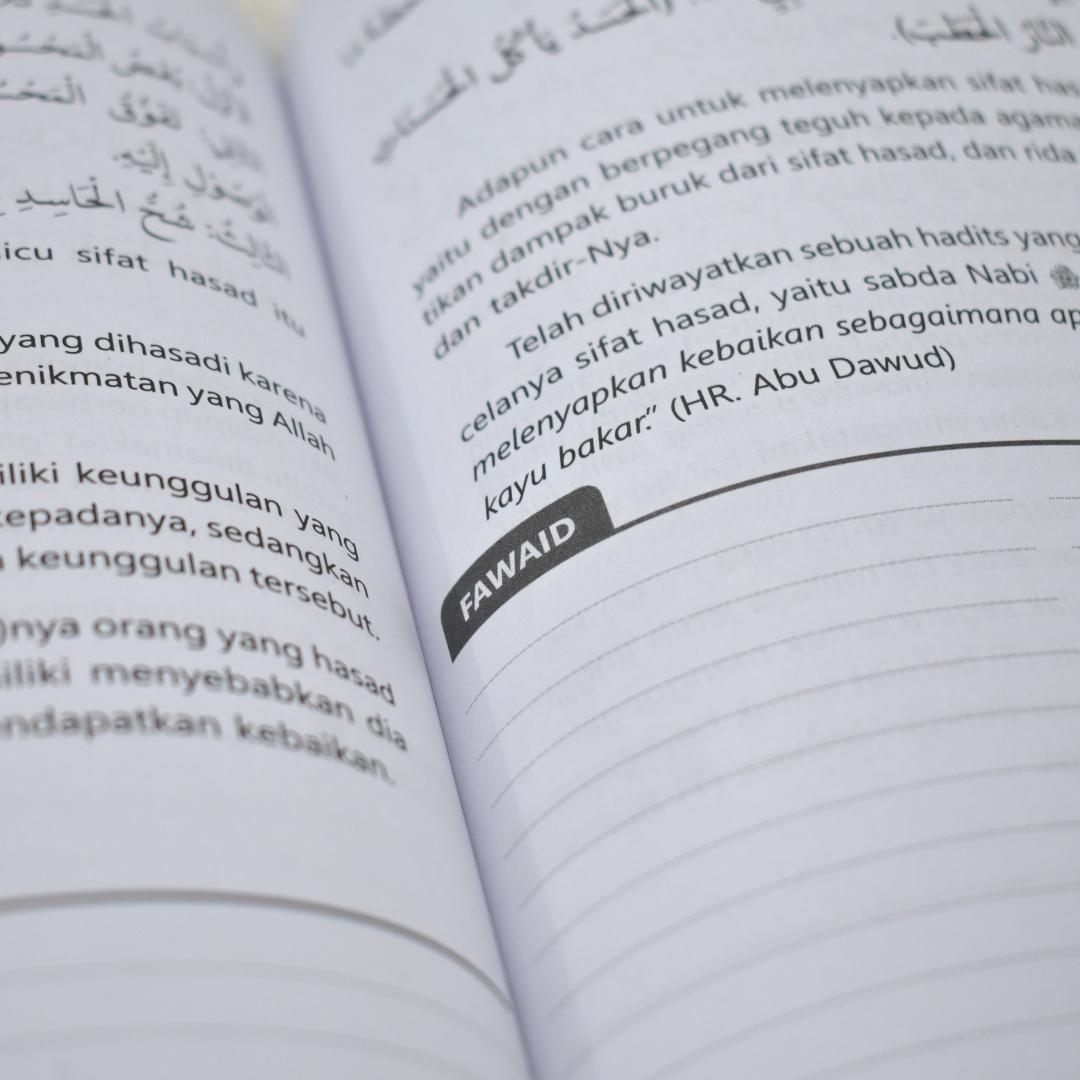 تَفَوُّقُ
وَصُوْلٍ إِلَيْهِ.
اَلثَّالِثُ: شُحُّ الْحَاسِدِ
icu sifat hasad itu
yang dihasadi karena
enikmatan yang Allah
iliki keunggulan yang
kepadanya, sedangkan
keunggulan tersebut.
)nya orang yang hasad
iliki menyebabkan dia
endapatkan kebaikan.
(الْحَسَدُ يَأْكُلُ الْحَسَنَاتِ
النَّارُ الْحَطَبَ).
Adapun cara untuk melenyapkan sifat has
yaitu dengan berpegang teguh kepada agama
tikan dampak buruk dari sifat hasad, dan rida
dan takdir-Nya.
Telah diriwayatkan sebuah hadits yang
celanya sifat hasad, yaitu sabda Nabi ﷺ
melenyapkan kebaikan sebagaimana ap
kayu bakar." (HR. Abu Dawud)
FAWAID